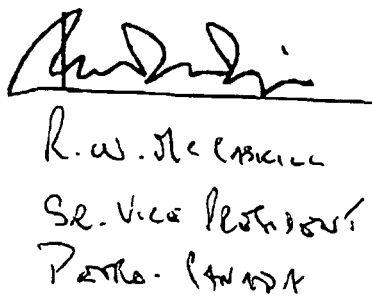 R. W. McCASKILL
SR. VICE PRESIDENT
PETRO-CANADA